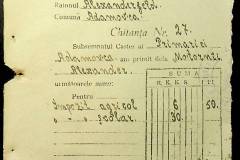 Raionul Alexanderfeld.
Comuna Adamovca.
Chitanța Nr. 27.
Subsemnatul Casier al Primăriei
Adamovca am primit dela
Alexander.
următoarele sume:
SUMA
Pentru
Impozit agricol 6 50
" " școlar 30